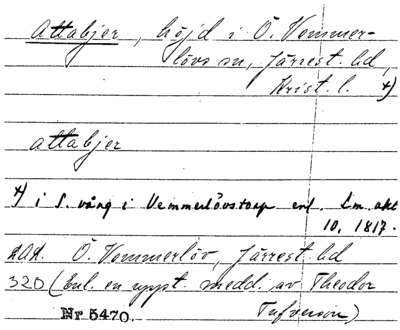 Attabjer, höjd i Ö. Vemmer-
lövs sn, Järrest. hd,
Krist. l. *)
attabjer
*) i S. vång i Vemmerlövstorp enl. Lm. akt
10, 1817.
Ö. Vemmerlöv, Järrest. hd
320 (Enl. en uppt. medd. av Theodor
Tufvesson)
Nr 5470.